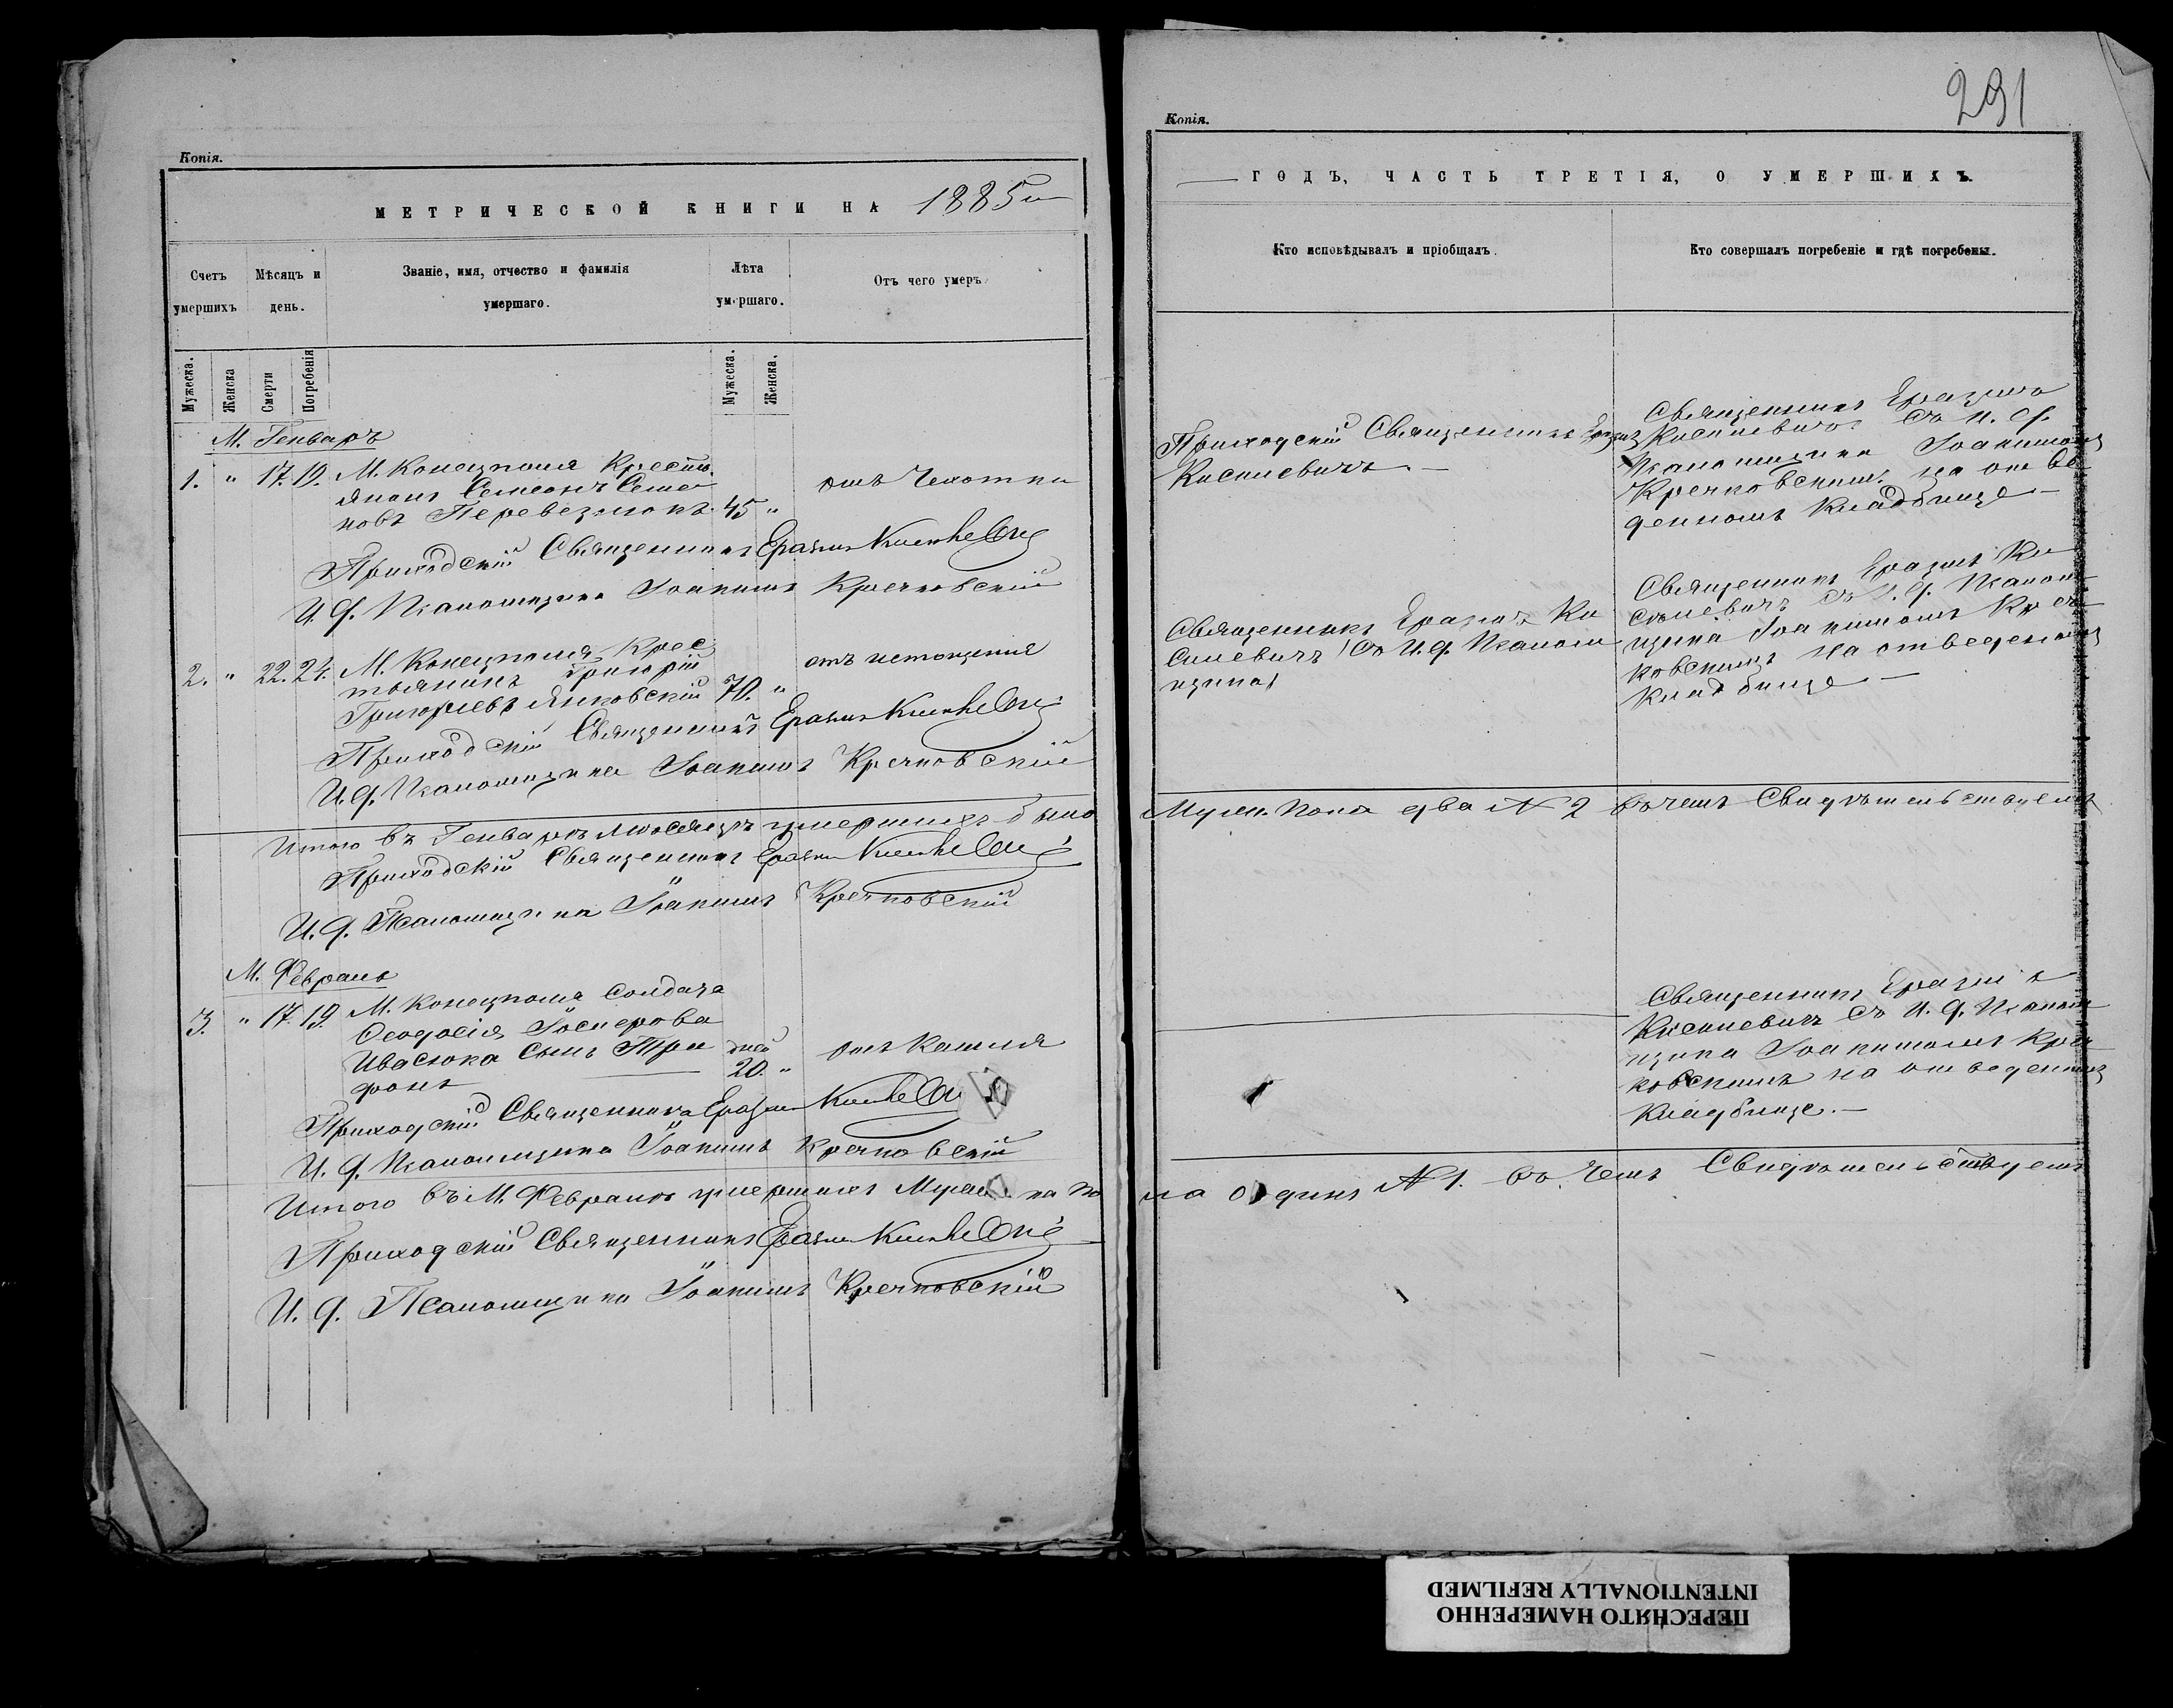 Копія.
МЕТРИЧЕСКОЙ КНИГИ НА 1885й
Счетъ умершихъ
Мѣсяцъ и день.
Званіе, имя, отчество и фамилія умершаго.
Лѣта умершаго.
Отъ чего умеръ.
Мужеска.
Женска
Смерти
Погребенія
Мужеска.
Женска.
М. Генварь
1. " 17. 19. М. Конецполя Крестья
янинъ Семеонъ Семе
новъ Перевезнюкъ. 45 " отъ Чахотки
Приходскій Священникъ Еразмъ Кисилевичъ
И. д. Псаломщика Іоакимъ Кречковскій
2. " 22. 24. М. Конецполя Крес
тьянинъ Григорій
Григорьевъ Янковскій 70. " отъ истощенія
Приходскій Священникъ Еразмъ Кисилевичъ
И. д. Псаломщика Іоакимъ Кречковскій
Итого въ Генварѣ мѣсяцѣ умершихъ было
Приходскій Священникъ Еразмъ Кисилевичъ
И. д. Псаломщика Іоакимъ Кречковскій
М. Февраль
3. " 17. 19. М. Конецполя Солдата
Ѳеодосія Іосиѳова
Ивасюка сынъ Три
фонъ дней 20. " отъ Кашля
Приходскій Священникъ Еразмъ Кисилевичъ
И. д. Псаломщика Іоакимъ Кречковскій
Итого въ М. Февралѣ умершихъ Мужеска по
Приходскій Священникъ Еразмъ Кисилевичъ
И. д. Псаломщика Іоакимъ Кречковскій
291
Копія.
ГОДЪ, ЧАСТЬ ТРЕТІЯ, О УМЕРШИХЪ.
Кто исповѣдывалъ и пріобщалъ.
Кто совершалъ погребеніе и гдѣ погребены.
Приходскій Священникъ Еразмъ
Кисилевичъ. —
Священникъ Еразмъ
Кисилевичъ съ и. д.
Псаломщика Іоакимомъ
Кречковскимъ на отве
денномъ Кладбище —
Священникъ Еразмъ Ки
силевичъ съ И. д. Псалом
щика
Священникъ Еразмъ Ки
силевичъ съ И. д. Псалом
щика Іоакимомъ Креч
ковскимъ на отведеномъ
Кладбище —
Мужск. пола два № 2 въ чемъ Свидѣтельствуемъ
Священникъ Еразмъ
Кисилевичъ съ И. д. Псалом
щика Іоакимомъ Креч
ковскимъ на отведенномъ
Кладбище. —
ла одинъ № 1. въ чемъ Свидѣтельствуемъ
ПЕРЕСНЯТО НАМЕРЕННО
INTENTIONALLY REFILMED